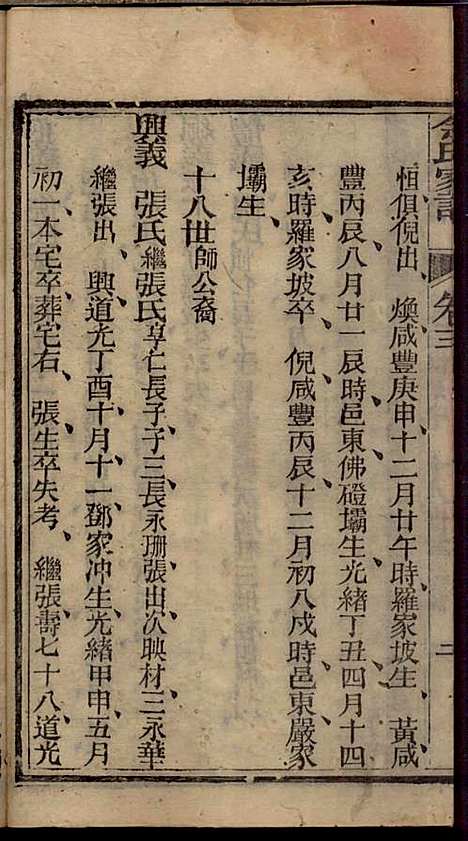 氏家譜
卷三
二
恒俱倪出煥咸豐庚申十二月廿午時羅家坡生黃咸
豐丙辰八月廿一辰時邑東佛磴壩生光緒丁丑四月十四
亥時羅家坡卒倪咸豐丙辰十二月初八戌時邑東嚴家
壩生
十八世師公裔
興義 張氏繼張氏享仁長子子三長永珊張出次映材三永華
繼張出興道光丁酉十月十一鄧家冲生光緒甲申五月
初一本宅卒葬宅右張生卒失考繼張壽七十八道光